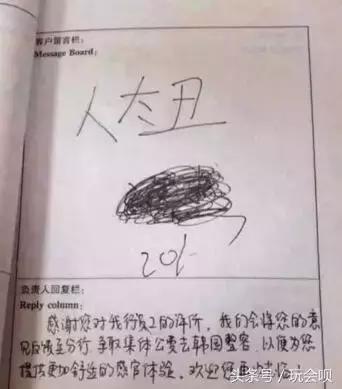 客户留言栏：
Message Board:
人太丑
201
负责人回复栏：
Reply column:
感谢您对我行员工的评价，我们会将您的意
见反馈至分行，争取集体公费去韩国整容，以便为您
提供更加舒适的感官体验，欢迎您再
头条号/玩会呗